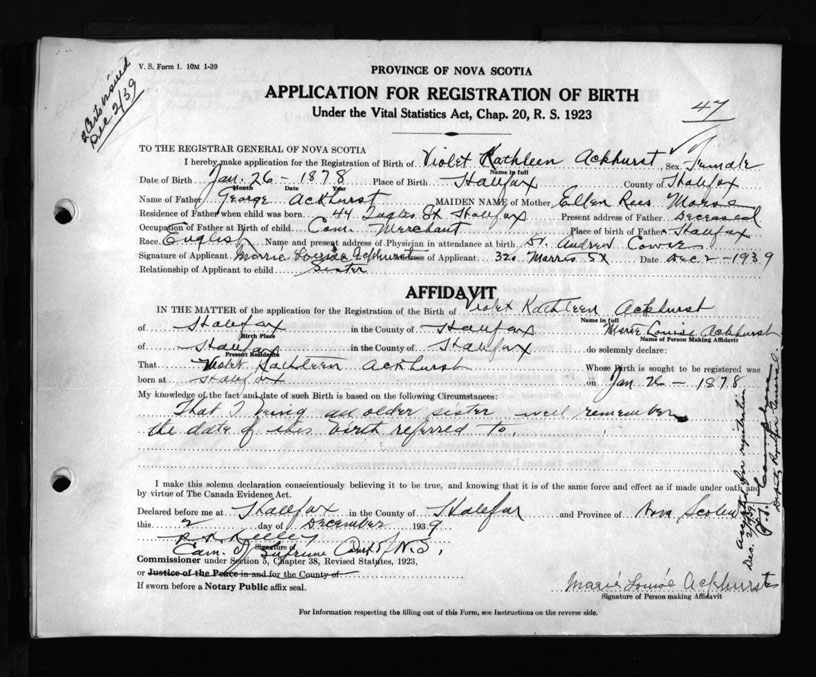 V. S. Form 1. 10M 1-39
2 Certs issued
Dec 2/39
PROVINCE OF NOVA SCOTIA
APPLICATION FOR REGISTRATION OF BIRTH
Under the Vital Statistics Act, Chap. 20, R. S. 1923
47
TO THE REGISTRAR GENERAL OF NOVA SCOTIA
I hereby make application for the Registration of Birth of Violet Kathleen Ackhurst Sex Female
Name in full
Date of Birth Jan. 26 - 1878 Place of Birth Halifax County of Halifax
Month Date Year
Name of Father George Ackhurst MAIDEN NAME of Mother Ellen Rees Morse
Residence of Father when child was born 44 Inglis St Halifax Present address of Father Deceased
Occupation of Father at Birth of child Com. Merchant Place of birth of Father Halifax
Race English Name and present address of Physician in attendance at birth Dr. Andrew Cowie
Signature of Applicant Marie Louise Ackhurst Address of Applicant 320 Morris St Date Dec 2 - 1939
Relationship of Applicant to child Sister
AFFIDAVIT
IN THE MATTER of the application for the Registration of the Birth of Violet Kathleen Ackhurst
Name in full
of Halifax in the County of Halifax Marie Louise Ackhurst
Birth Place Name of Person Making Affidavit
of Halifax in the County of Halifax do solemnly declare:
Present Residence
That Violet Kathleen Ackhurst Whose Birth is sought to be registered was
born at Halifax on Jan 26 - 1878
My knowledge of the fact and date of such Birth is based on the following Circumstances:
That I being an older sister well remember
the date of this birth referred to.
I make this solemn declaration conscientiously believing it to be true, and knowing that it is of the same force and effect as if made under oath and
by virtue of The Canada Evidence Act.
Declared before me at Halifax in the County of Halifax and Province of Nova Scotia
this 2 day of December 1939
Signature of
Com. of Supreme Court of N.S.
Commissioner under Section 5, Chapter 38, Revised Statutes, 1923,
or Justice of the Peace in and for the County of
If sworn before a Notary Public affix seal.
Marie Louise Ackhurst
Signature of Person making Affidavit
For Information respecting the filling out of this Form, see Instructions on the reverse side.
accepted for registration
Dec. 2/1939
Deputy Registrar General